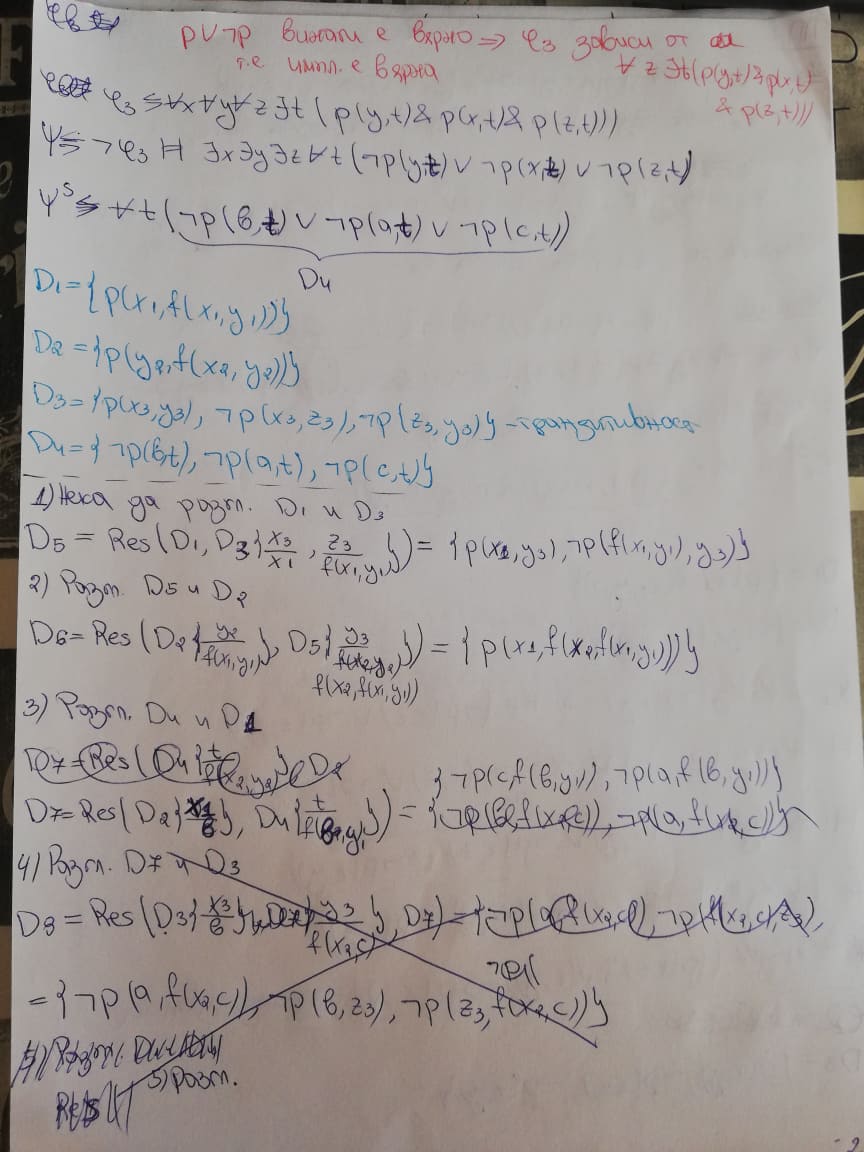 p∨¬p винаги е вярно ⇒ φ₃ зависи от
т.е импл. е вярна
∀z∃t(p(y,t)&p(x,t)
& p(z,t)))
φ₃ ≤ ∀x∀y∀z∃t (p(y,t)& p(x,t)& p(z,t)))
Ψ≤ ¬φ₃ ⊨ ∃x∃y∃z∀t (¬p(y,t)∨ ¬p(x,t) ∨ ¬p(z,t))
Ψˢ≤ ∀t(¬p(b,t) ∨ ¬p(a,t) ∨ ¬p(c,t))
D₄
D₁={p(x₁,f(x₁,y₁))}
D₂={p(y₂,f(x₂,y₂))}
D₃={p(x₃,y₃), ¬p(x₃,z₃),¬p(z₃,y₃)} - транзитивност
D₄={¬p(b,t),¬p(a,t),¬p(c,t)}
1) Нека да разгл. D₁ и D₃
D₅ = Res(D₁, D₃{x₃/x₁, z₃/f(x₁,y₁)}) = {p(x₁,y₃),¬p(f(x₁,y₁),y₃)}
2) Разгл. D₅ и D₂
D₆= Res(D₂{y₂/f(x₁,y₁)}, D₅{y₃/f(x₂,y₂)}) = {p(x₁,f(x₂,f(x₁,y₁)))}
f(x₂,f(x₁,y₁))
3) Разгл. D₄ и D₁
D₇=Res(D₄{t/f(x₂,y₂)}, D₂
{¬p(c,f(b,y₁)),¬p(a,f(b,y₁))}
D₇=Res(D₂{x₁/b}, D₄{t/f(b,y₁)}) = {¬p(b,f(x₂,c)),¬p(a,f(x₂,c))}
4) Разгл. D₇ и D₃
D₈ = Res(D₃{x₃/b, y₃/f(x₂,c)}, D₇) = {¬p(a,f(x₂,c)),¬p(f(x₂,c),z₃),
= {¬p(a,f(x₂,c)), ¬p(b,z₃),¬p(z₃,f(x₂,c))}
5) Разгл.
Res